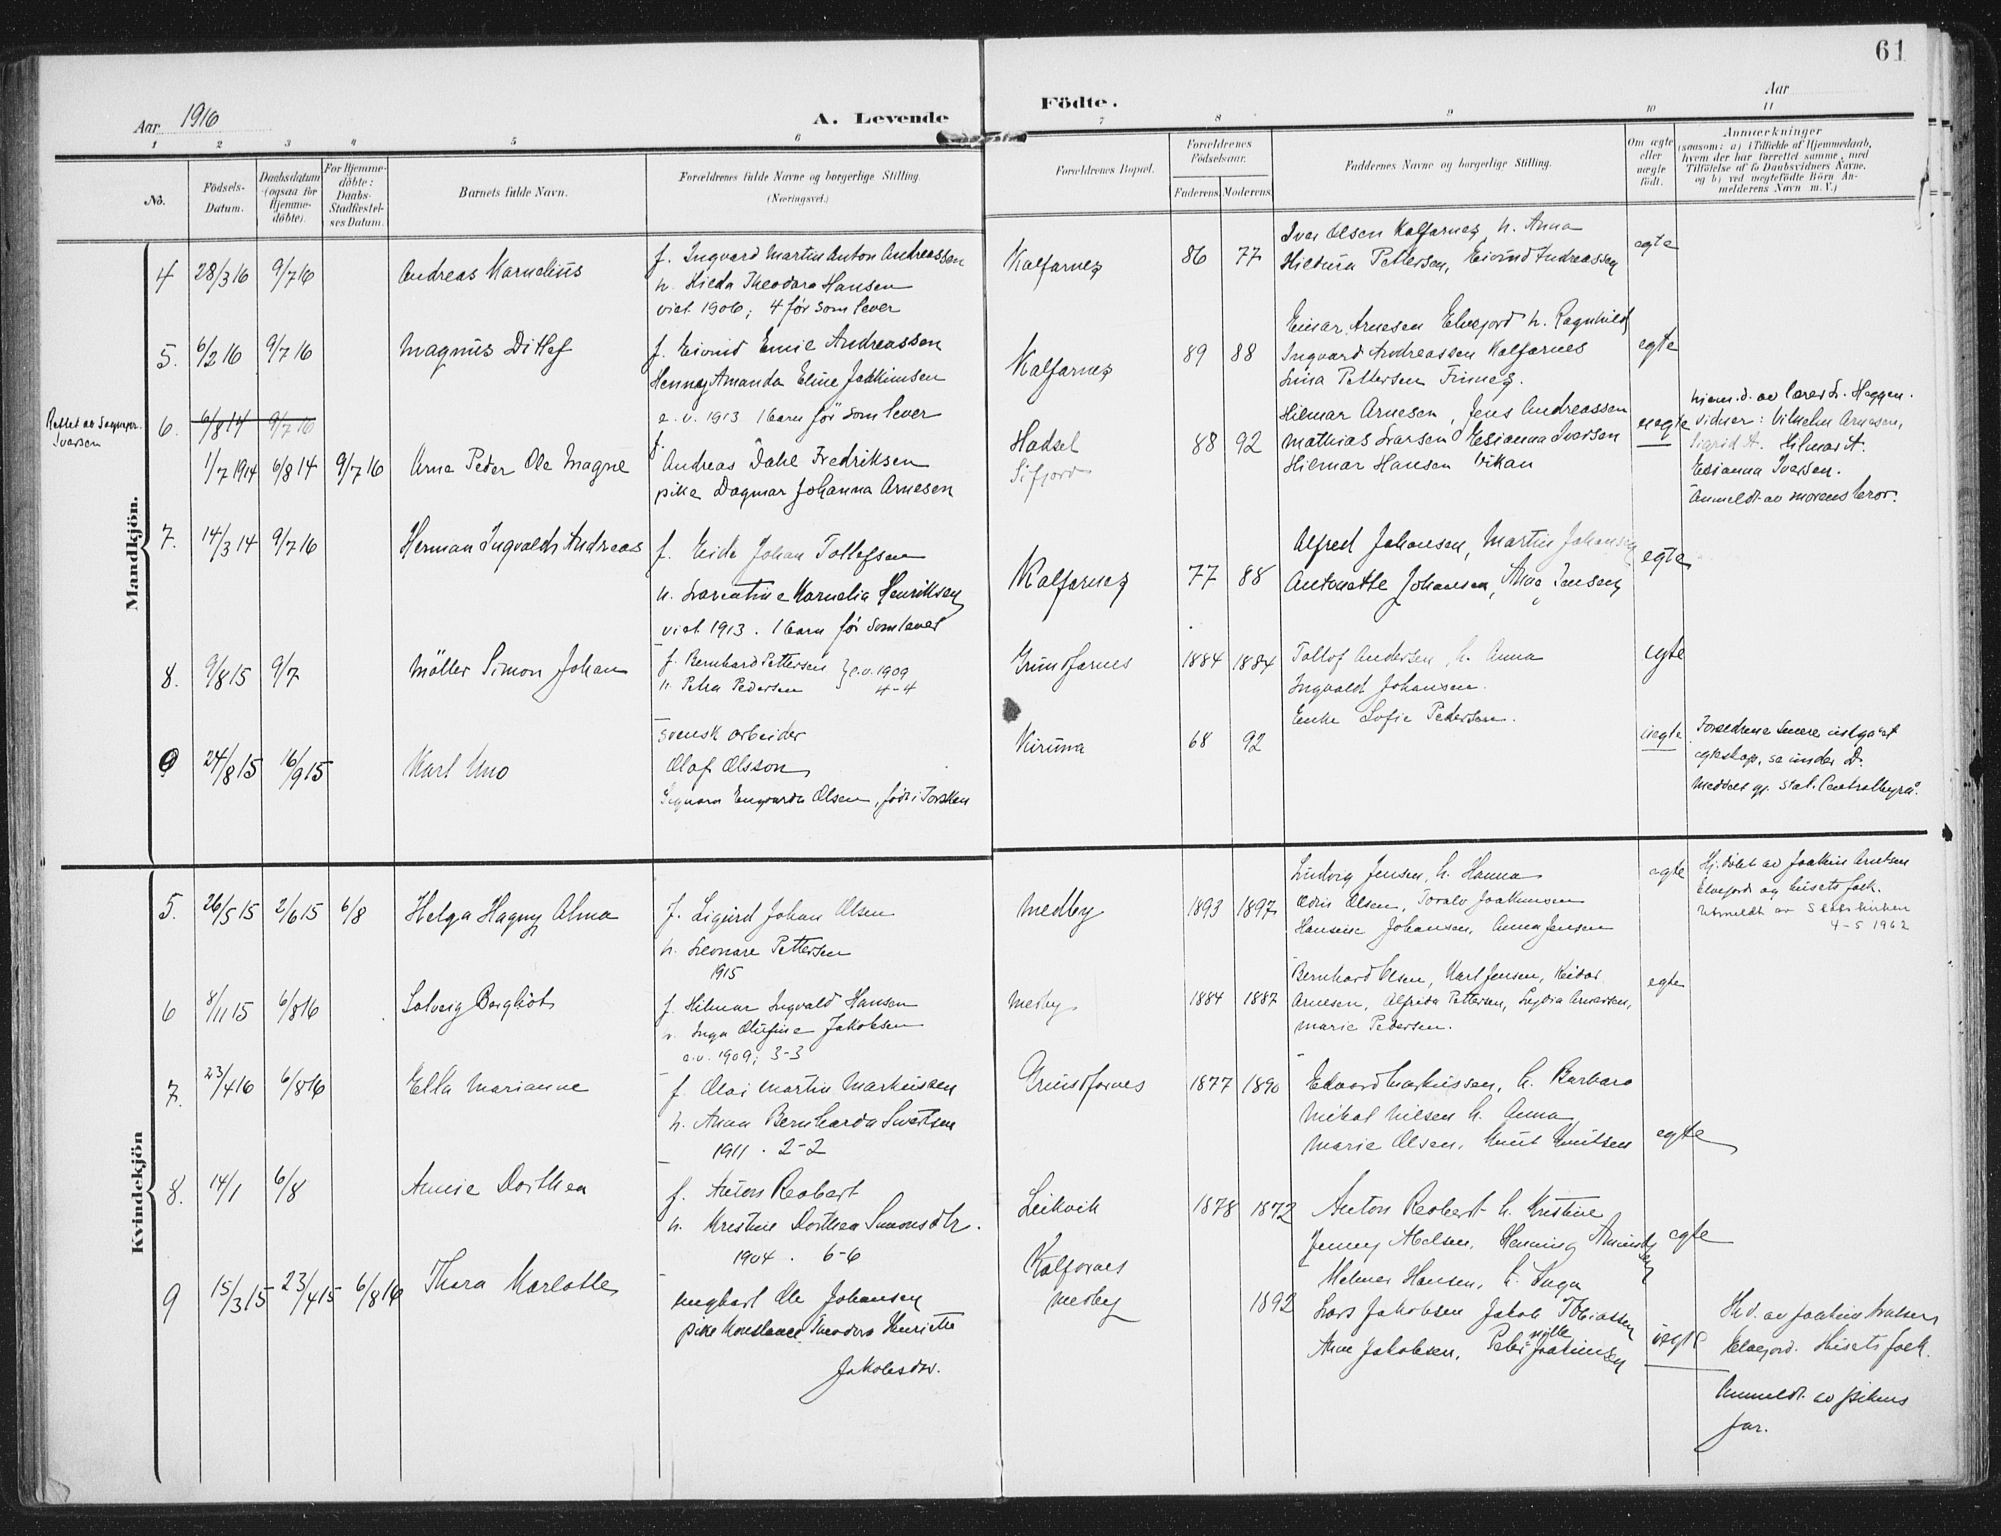 61
Aar 1916
A. Levende
Födte.
Aar
1 2 3 4 5 6 7 8 9 10 11
No.
Födsels-Datum.
Daabsdatum (ogsaa for Hjemme-döbte).
For Hjemme-döbte: Daabs-Stadfæstel-ses Datum.
Barnets fulde Navn.
Forældrenes fulde Navne og borgerlige Stilling.
(Næringsvei.)
Forældrenes Bopæl.
Forældrenes Födselsaar.
Faderens Moderens
Faddernes Navne og borgerlige Stilling.
Om ægte eller uægte födt.
Anmærkninger
(saasom: a) i Tilfælde af Hjemmedaab, hvem der har forrettet samme, med Tilföielse af to Daabsvidners Navne, og b) ved uægtefödte Börn An-melderens Navn m. V.)
Mandkjön.
4 28/3 16 9/7 16 Andreas Kornelius
f. Ingvard Martin Anton Andreassen
h. Hilda Theodora Hansen
viet 1906; 4 før som lever
Kalfarnes 86 77
Iver Olsen Kalfarnes, h. Anna
Hildura Pettersen, Eivind Andreassen
egte
5. 6/2 16 9/7 16 Magnus Ditlef
f. Eivind Emie Andreassen
Henny Amanda Eline Joakimsen
e. v. 1913 1 barn før som lever
Kalfarnes 89 88
Einar Arnesen Elvefjord h. Ragnhild
Ingvard Andreassen Kalfarnes
Lina Pettersen Finnes.
egte
Rettet av Sognepr. Iversen
6. 6/8 14 9/7 16
1/7 1914 6/8 14 9/7 16 Arne Peder Ole Magne
f. Andreas Dahl Fredriksen
pike Dagmar Johanna Arnesen
Hadsel
Sifjord
88 92
Hilmar Arnesen, Jens Andreassen
Mathias Larsen, Esianna Iversen
Hilmar Hansen Vikan
uegte
hjem.d. av lærer L. Heggen.
vidner: Vilhelm Arnesen,
Sigrid A. Hilmar A.
Esianna Iversen.
Anmeldt av morens bror.
7. 14/3 14 9/7 16 Herman Ingvald Andreas
f. Eide Johan Tollefsen
h. Laurentine Kornelia Henriksen
viet 1913. 1 barn før som lever
Kalfarnes 77 88
Alfred Johansen, Martin Johansen
Antonette Johansen, Anna Jensen
egte
8. 9/8 15 9/7 Möller Simon Johan
f. Bernhard Pettersen
h. Petra Pedersen } e.v. 1909
4-4
Grundfarnes 1884 1884
Tollof Andersen, h. Anna
Ingvald Johansen.
Enke Sofie Pedersen.
egte
9 24/8 15 16/9 15 Karl Uno
svensk arbeider
Olof Olsson
Signora Engvarda Olsen, født i Torsken
Kiruna 68 92
uegte
Forældrene senere indgaaet
egteskap, se under D.
Meddelt gj. Stat. Centralbyrå.
Kvindekjön
5. 26/5 15 2/6 15 6/8 Helga Hagny Alma
f. Sigurd Johan Olsen
h. Leonare Pettersen
1915
Medby 1893 1897
Ludvig Jensen, h. Hanna
Odin Olsen, Toralv Joakimsen
Hansine Johansen, Anna Jensen
egte
Hj.døbt av Joakim Arntsen
Elvefjord og husets folk.
Utmeldt av Statskirken
4-5 1962
6 8/11 15 6/8 16 Solveig Bergliot
f. Hilmar Ingvald Hansen
h. Inga Olufine Jakobsen
e.v. 1909; 3-3
Medby 1884 1887
Bernhard Olsen, Karl Jensen, Reidar
Arnesen, Alfrida Pettersen, Lydia Arnesen,
Marie Pedersen.
egte
7. 23/4 16 6/8 16 Ella Marianne
f. Olai Martin Markussen
h. Anna Bernharda Sivertsen
1911. 2-2
Grundfarnes 1877 1890
Edvard Markussen, h. Barbara
Mikal Nilsen h. Anna
Marie Olsen, Knut Knutsen
egte
8. 14/1 6/8 Annie Dorthea
f. Anton Reobert
h. Kristine Dorthea Simonsdtr.
1904. 6-6
Leikvik 1878 1872
Anton Reobert h. Kristine
Jenny Abelsen, Henning Amundsen
egte
9 15/3 15 23/4 15 6/8 16 Thora Karlotte
ungkarl Ole Johansen
pike Konstance Theodora Henriette
Jakobsdtr.
Kalfarnes
Medby
1892
Helmer Hansen, h. Inga
Lars Jakobsen Jakob Tobiassen
Anne Jakobsen, Petternille Joakimsen
uegte
Hd. av Joakim Arntsen
Elvefjord. Husets folk.
Anmeldt av pikens
far.